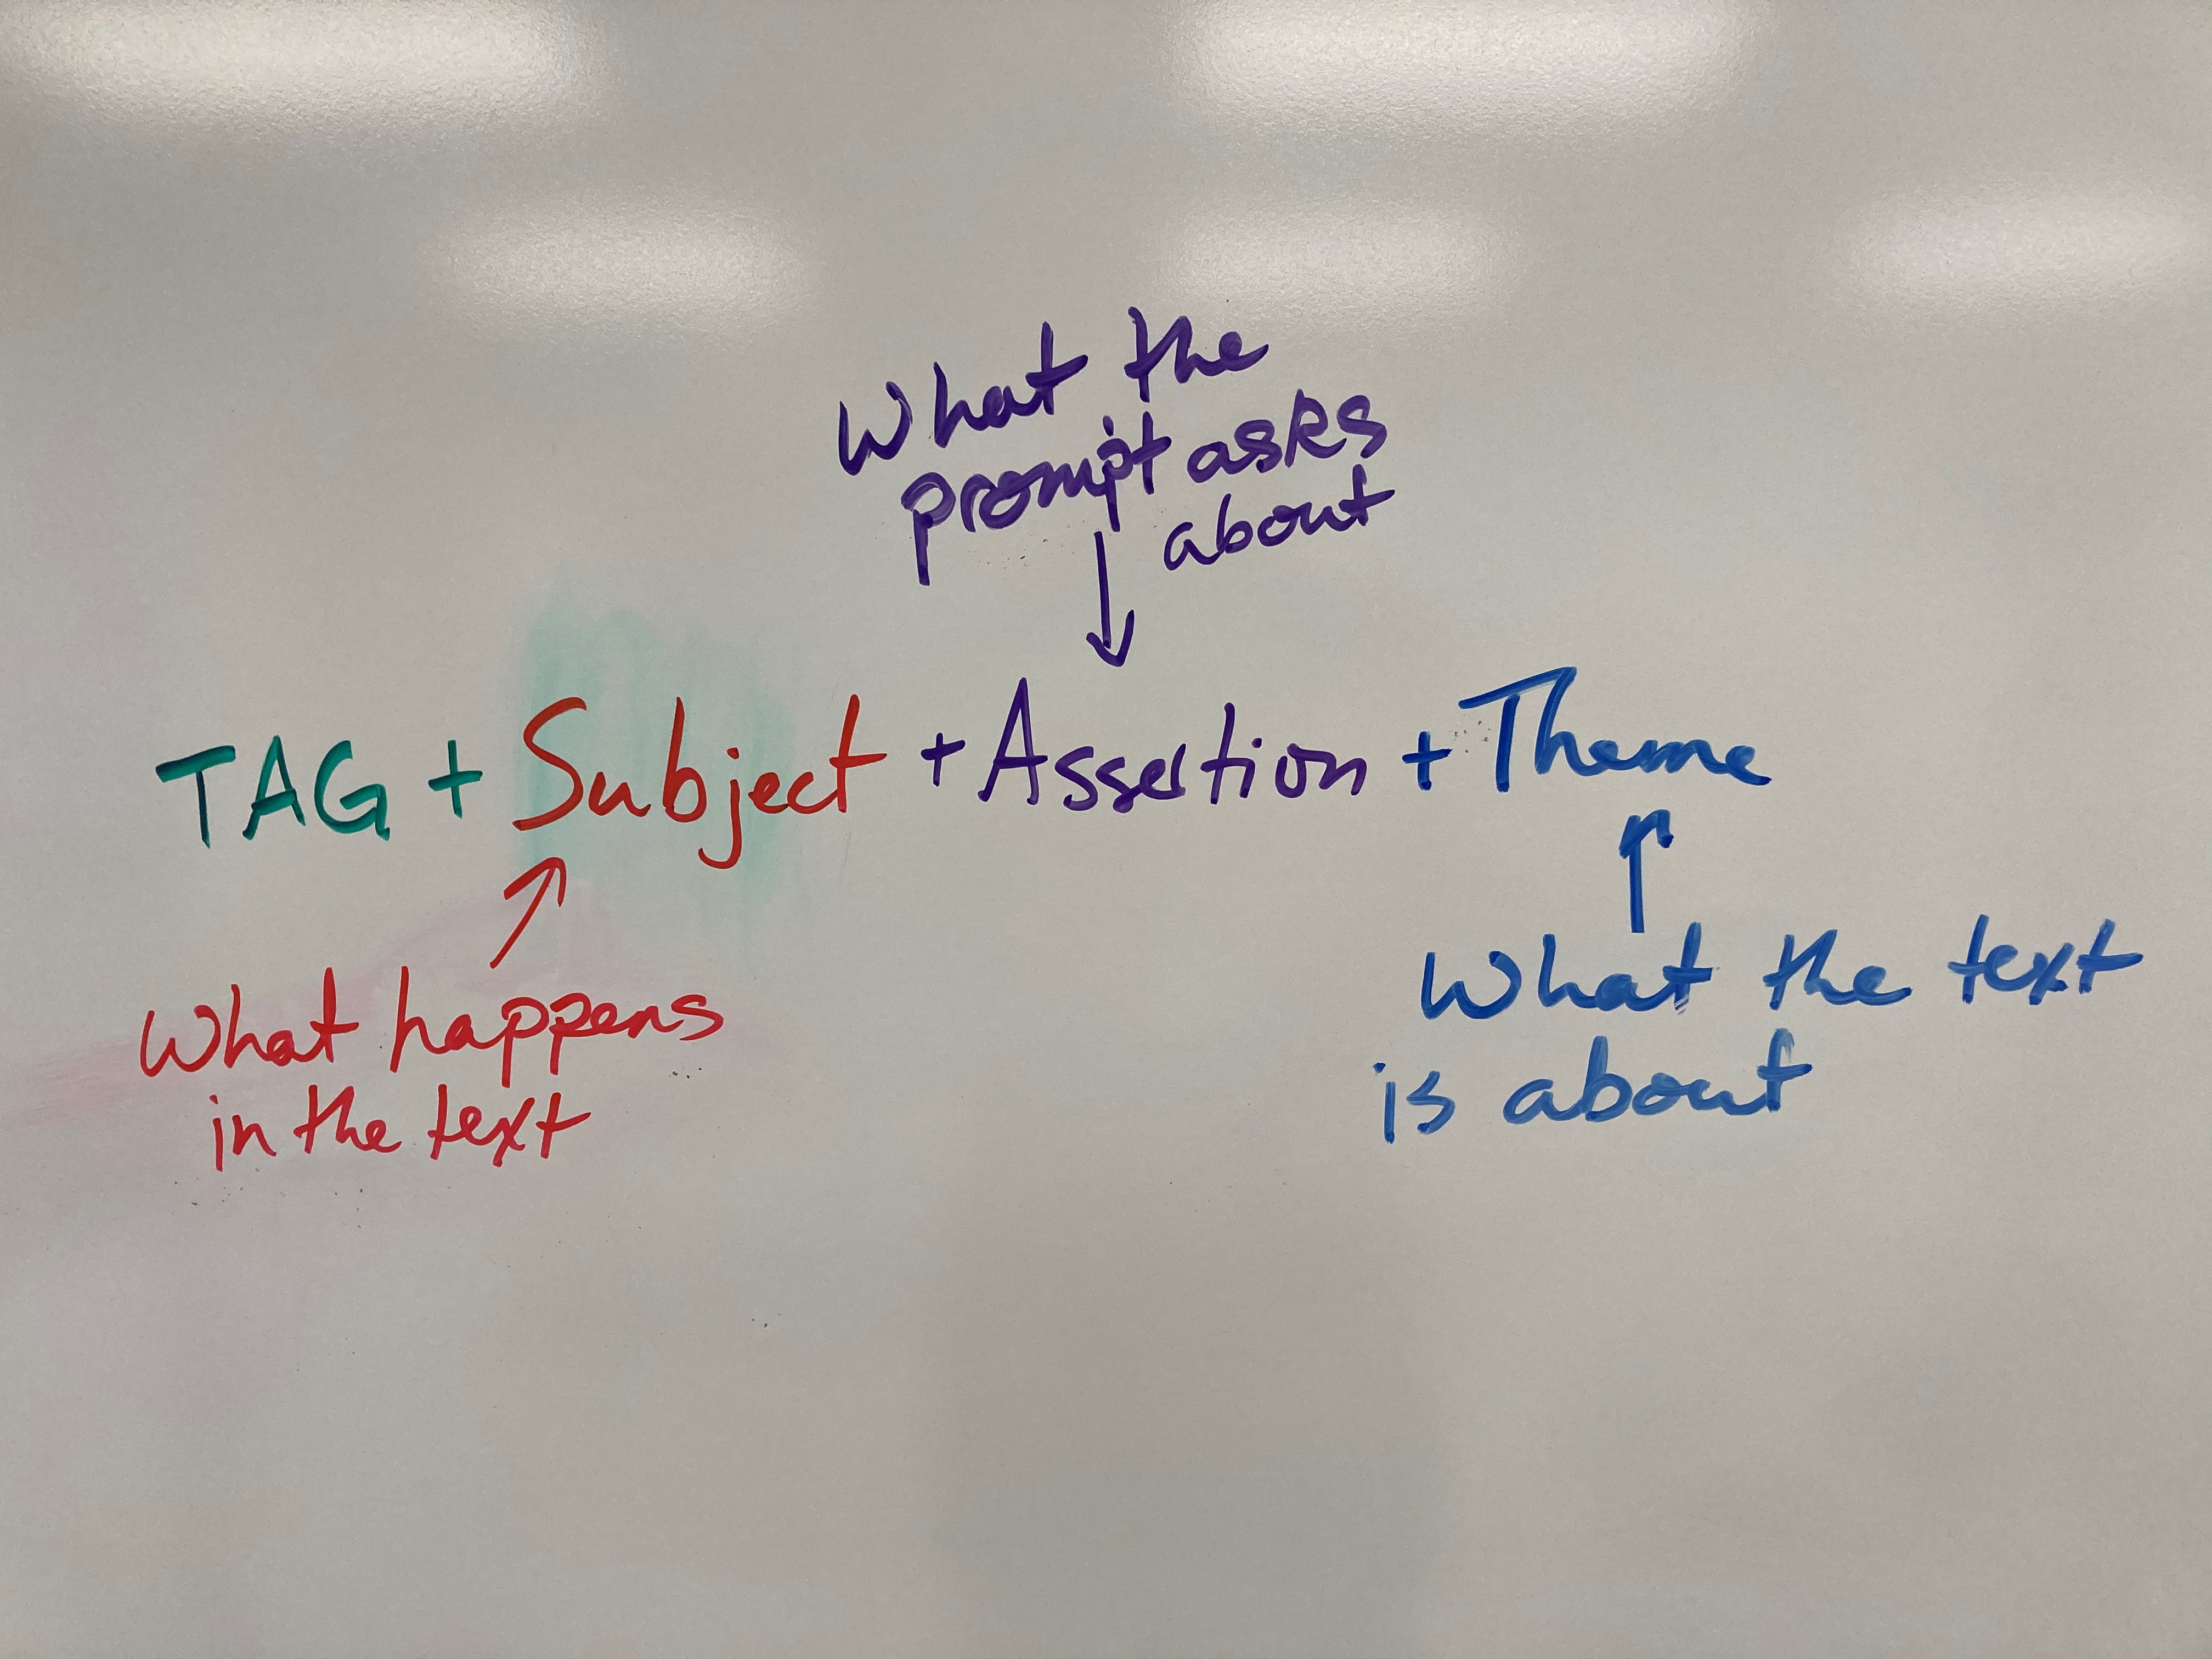 What the
prompt asks
about
TAG + Subject + Assertion + Theme
What happens
in the text
What the text
is about